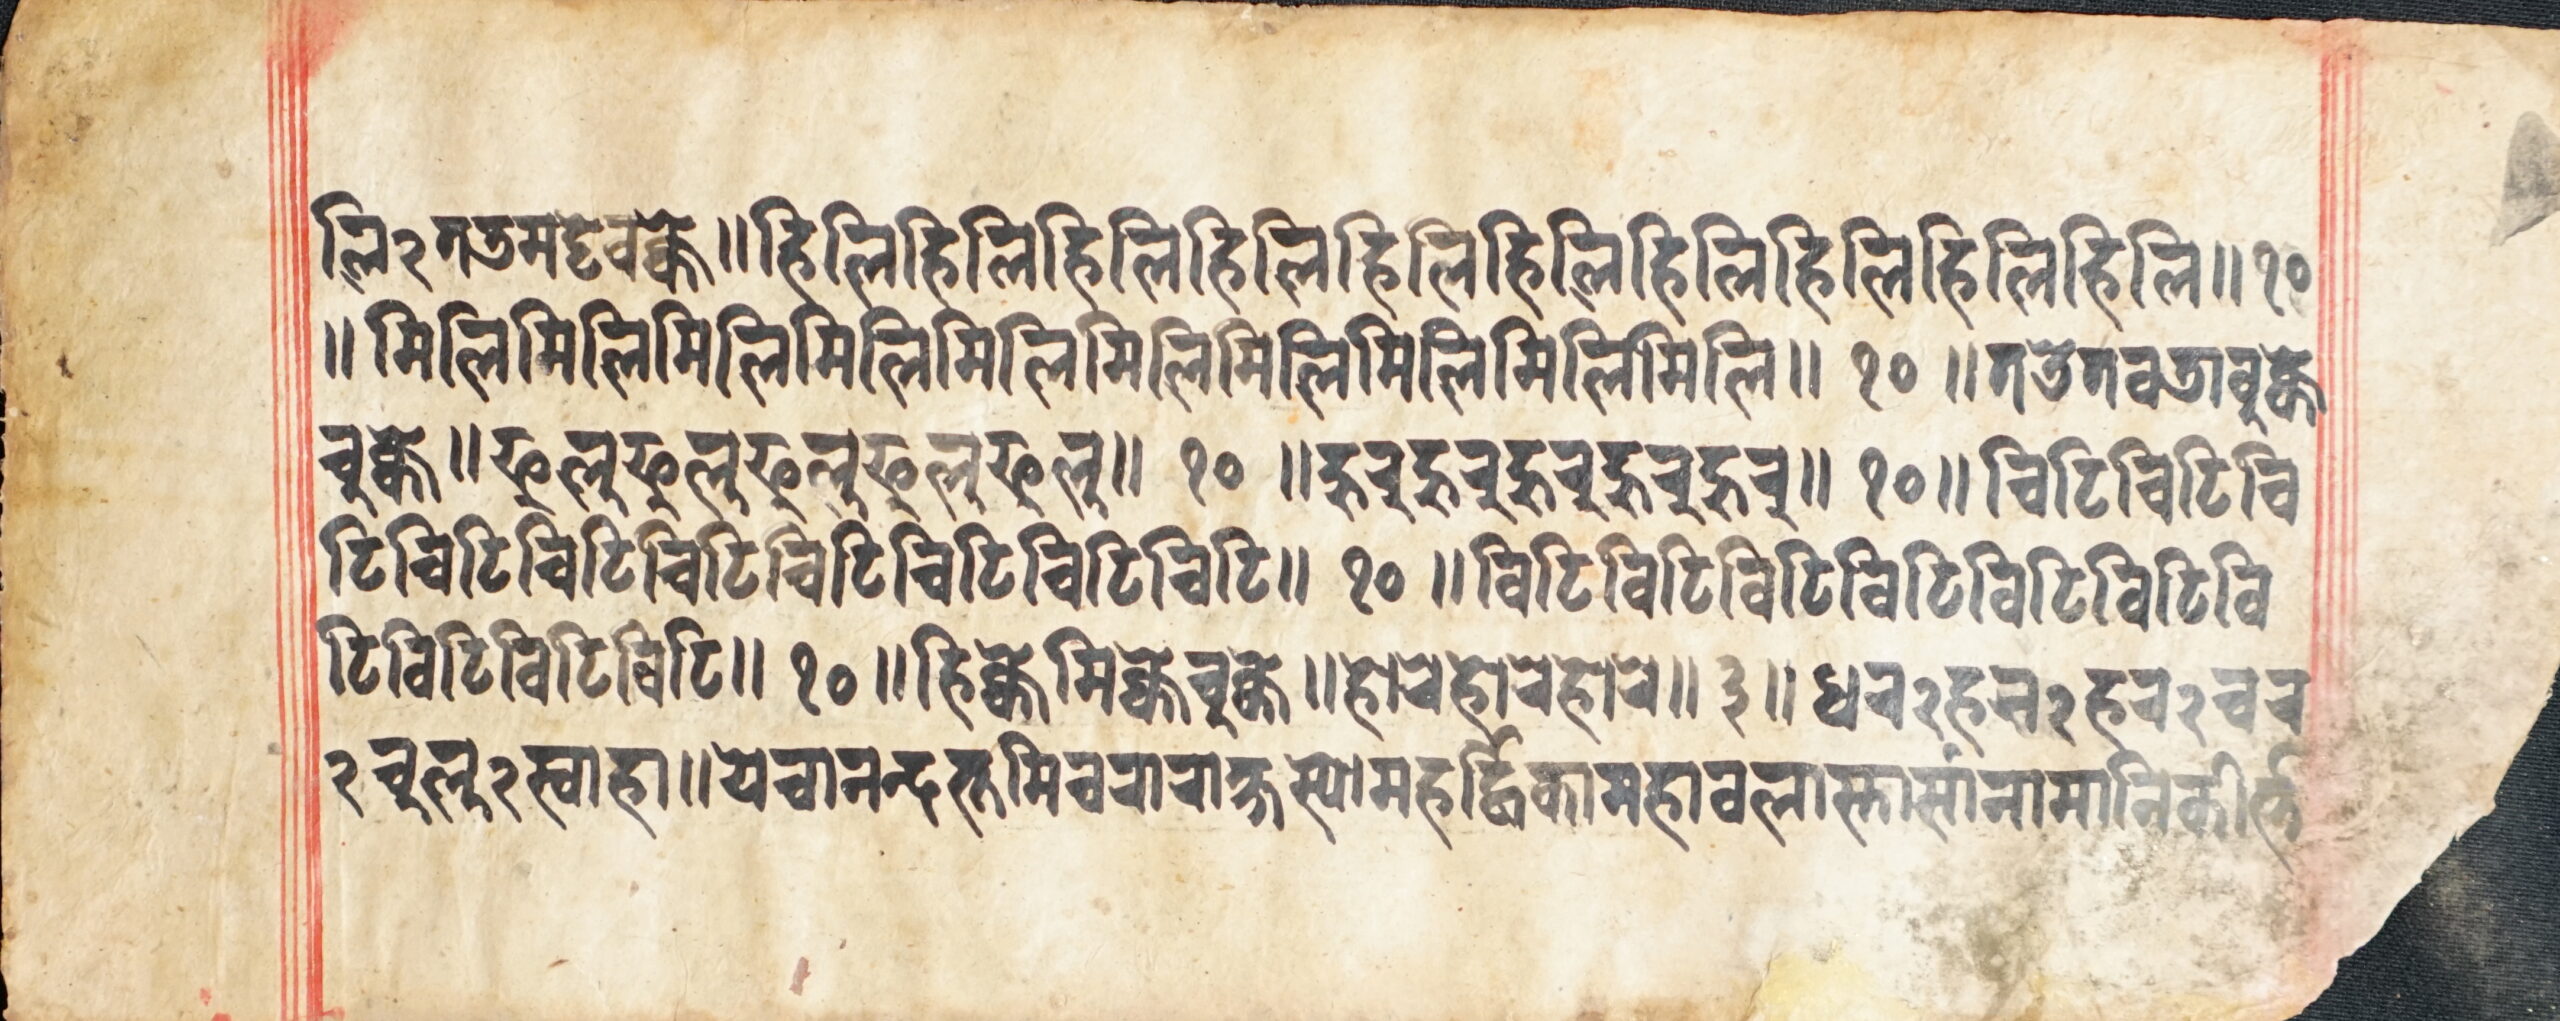 लि२गडमद्देवक्के॥हिलिहिलिहिलिहिलिहिलिहिलिहिलिहिलिहिलिहिलि॥१०
॥मिलिमिलिमिलिमिलिमिलिमिलिमिलिमिलिमिलिमिलि॥ १० ॥गडेगवडावुक्के
चुक्के॥फुलुफुलुफुलुफुलुफुलु॥ १० ॥हुरुहुरुहुरुहुरुहुरु॥ १०॥चिटिचिटिचि
टिचिटिचिटिचिटिचिटिचिटिचिटिचिटि॥ १० ॥विटिविटिविटिविटिविटिविटिवि
टिविटिविटिविटि॥ १० ॥हिक्केमिक्केचुक्के॥होरेहोरेहोरे॥३॥धर२हर२हर२चर
२चुलु२स्वाहा॥येचानन्दस्तमिचराराक्षस्योमहर्द्धिकामहावलास्तासांनामानिकीर्त्त